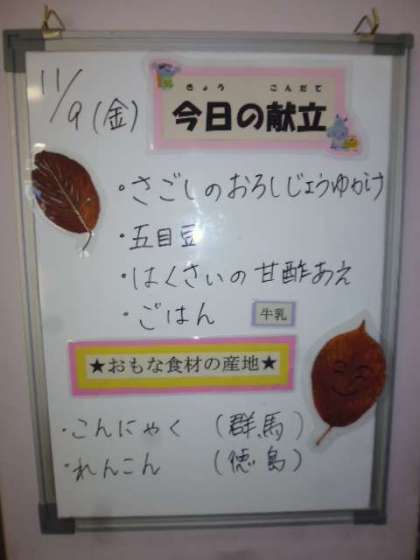 11/9(金)
きょう こんだて
今日の献立
・さごしのおろしじょうゆかけ
・五目豆
・はくさいの甘酢あえ
・ごはん 牛乳
★おもな食材の産地★
・こんにゃく (群馬)
・れんこん (徳島)